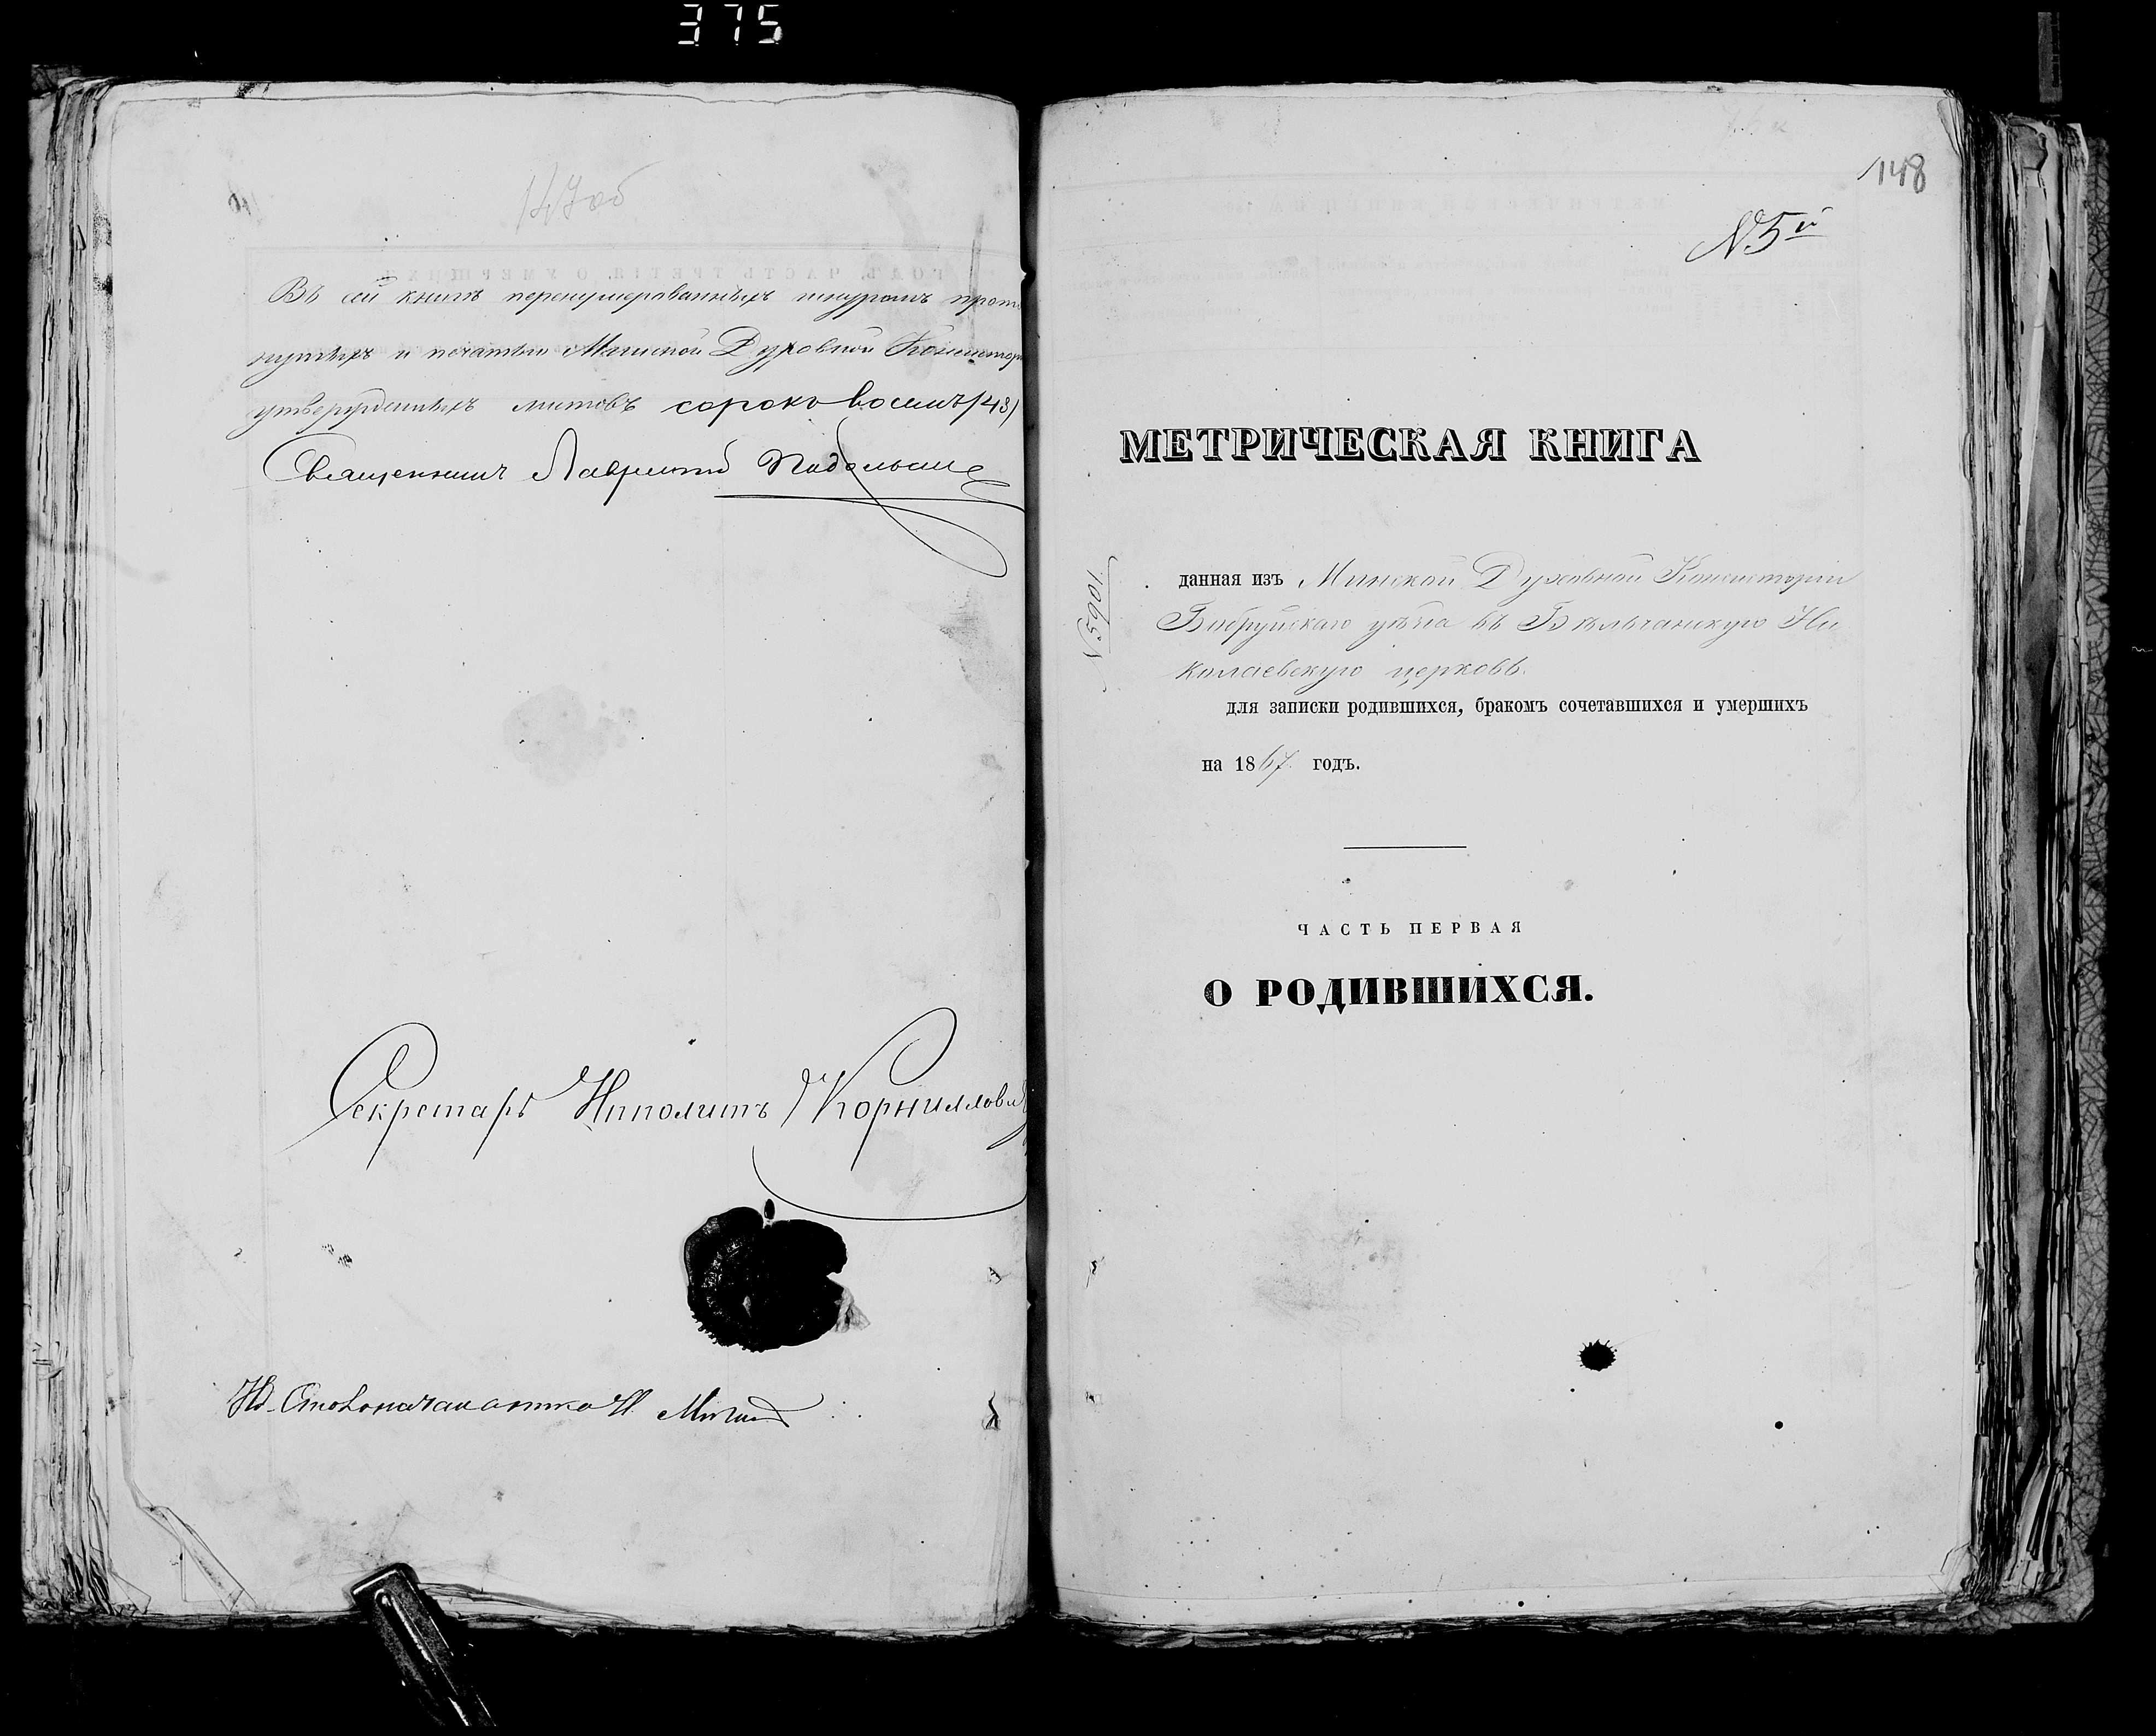 375
147об
Въ сей книгѣ перенумерованныхъ шнуромъ прото
нутыхъ и печатью Минской Духовной Консистор
утвержденныхъ листовъ сорокъ восемь /48/
Священникъ Лаврентій
Секретарь Ипполитъ Корниллов
И.д. Столоначальника
148
№5й
МЕТРИЧЕСКАЯ КНИГА
данная изъ Минской Духовной Консисторіи
Бобруйскаго уѣзда въ Бѣльчанскую Ни
колаевскую церковь.
для записки родившихся, бракомъ сочетавшихся и умершихъ
на 1867 годъ.
ЧАСТЬ ПЕРВАЯ
О РОДИВШИХСЯ.